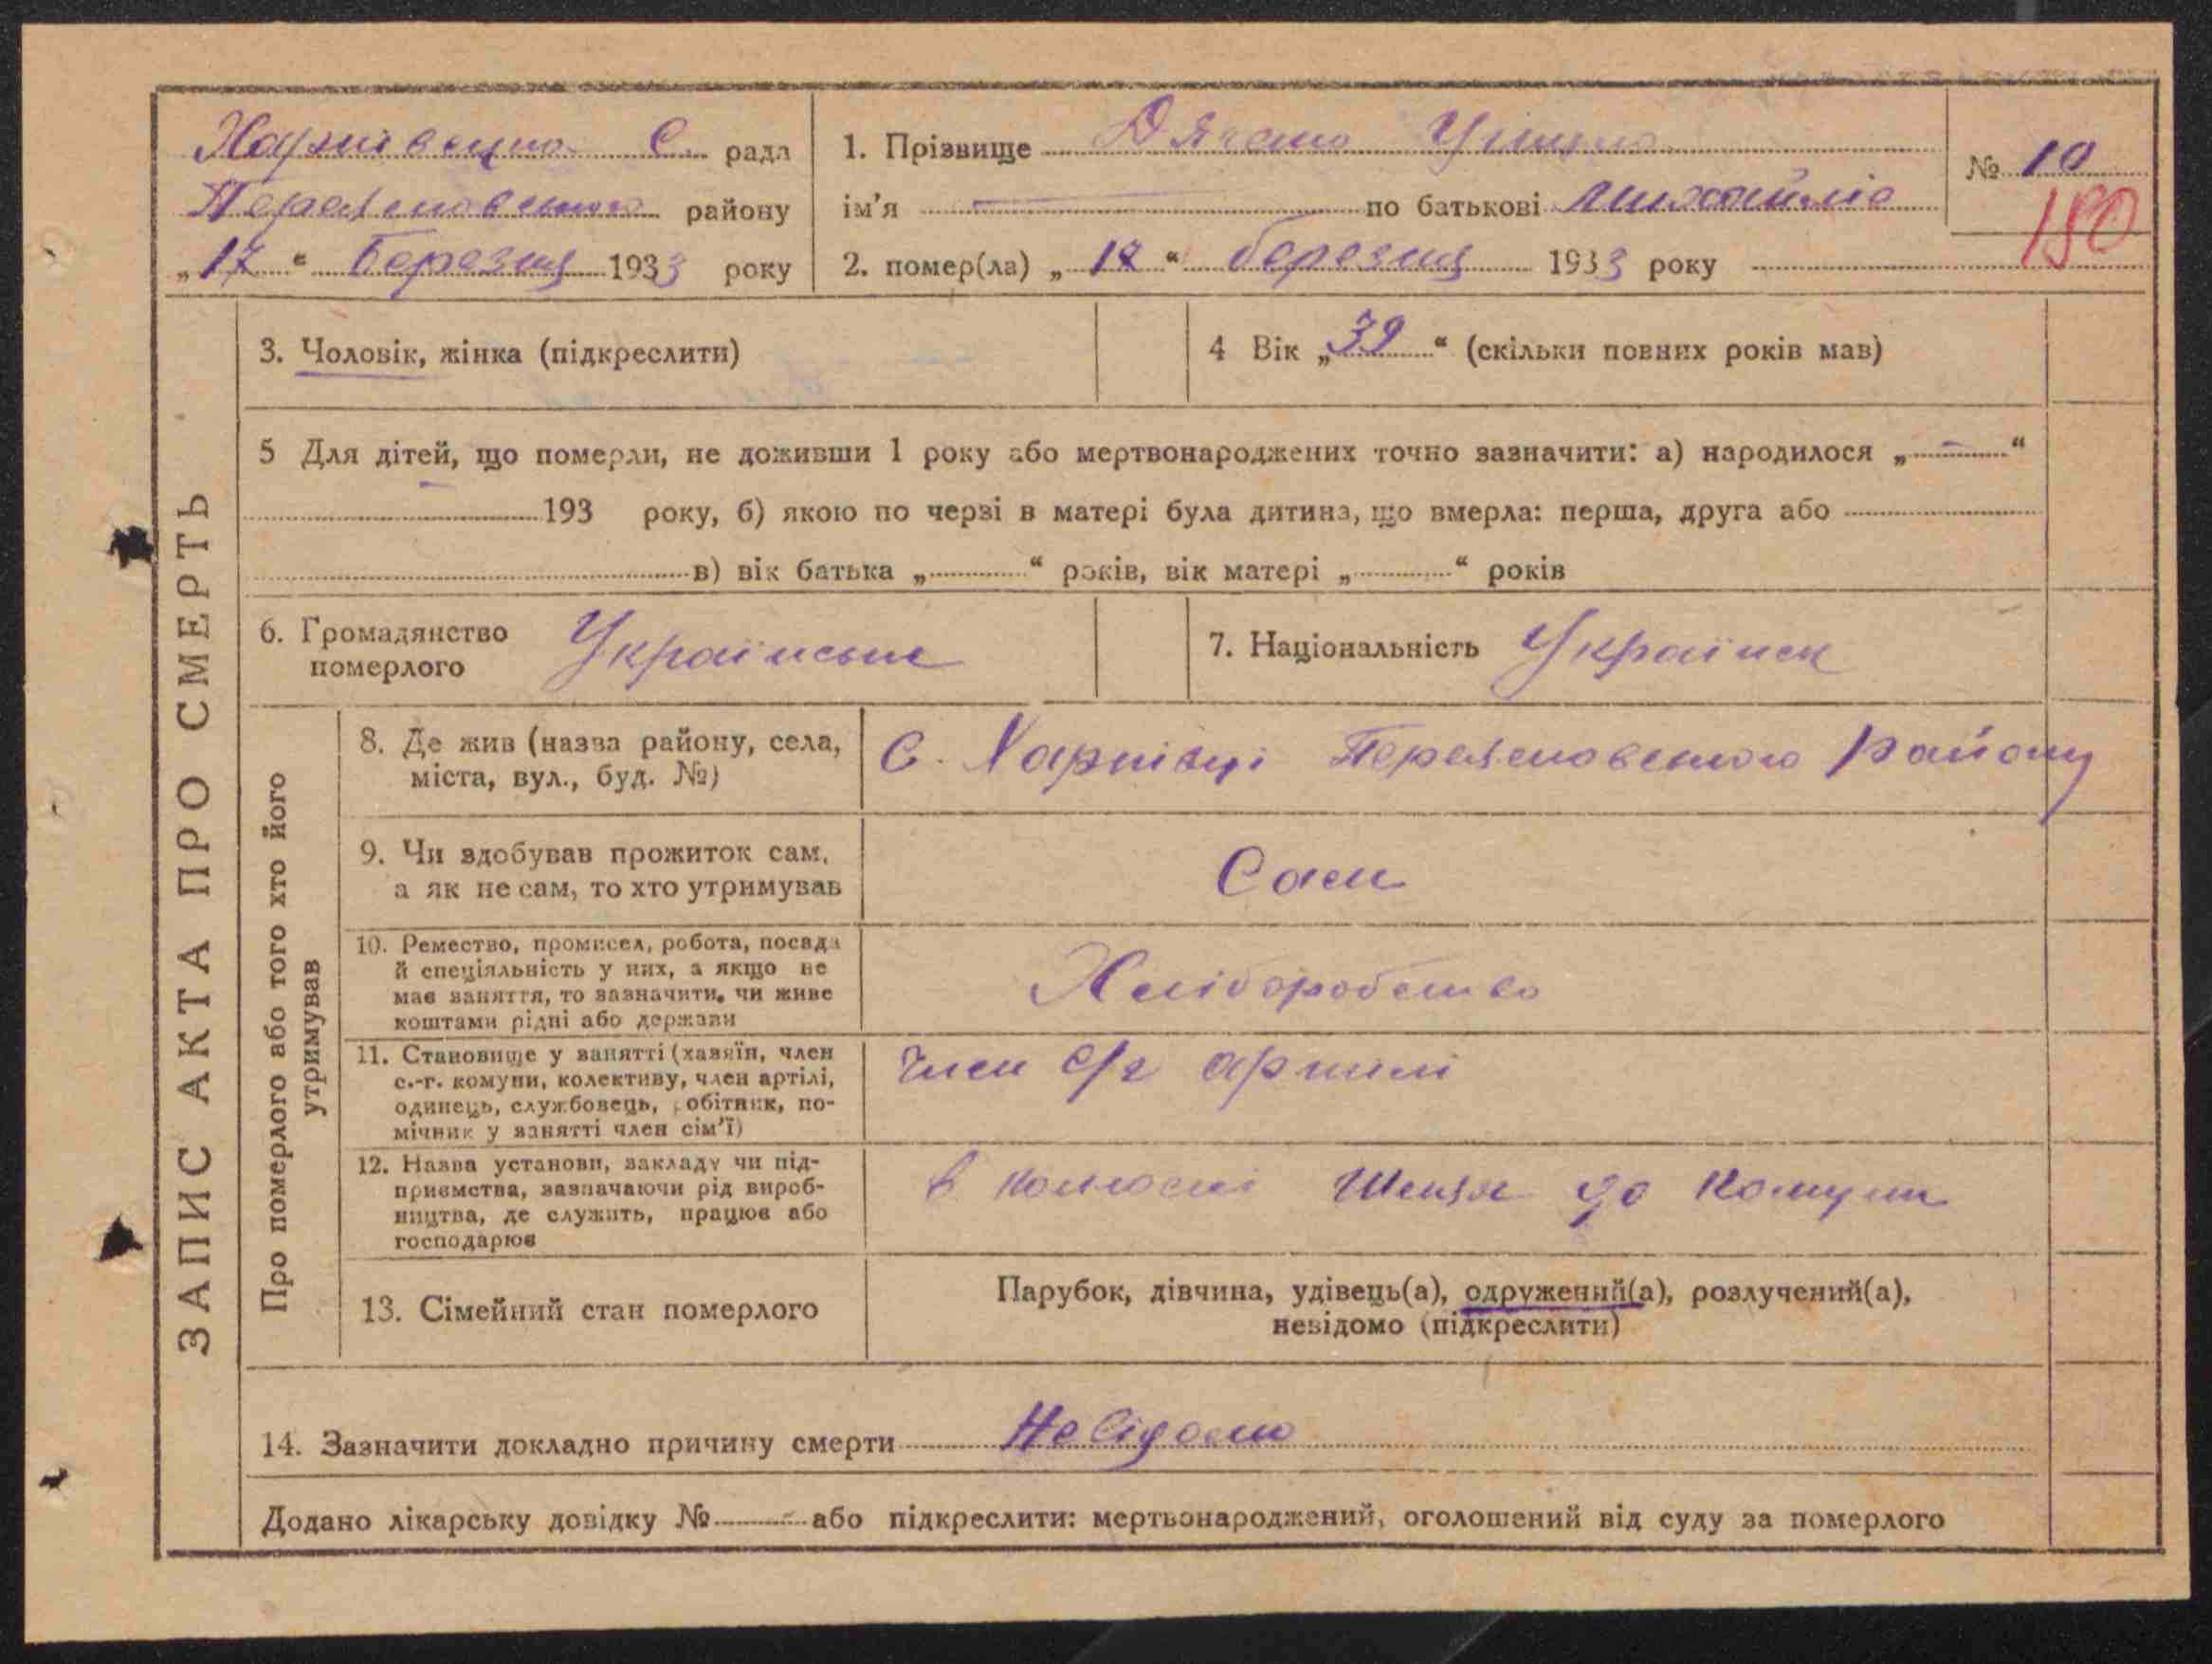 Харківецька С. рада
Переяславського району
„17" Березня 1933 року
1. Прізвище
ім'я — по батькові Михайлів
2. помер(ла) „ " березня 1933 року
№ 10
180
ЗАПИС АКТА ПРО СМЕРТЬ
3. Чоловік, жінка (підкреслити)
4 Вік „39" (скільки повних років мав)
5 Для дітей, що померли, не доживши 1 року або мертвонароджених точно зазначити: а) народилося „—"
193 року, б) якою по черзі в матері була дитина, що вмерла: перша, друга або
в) вік батька „ " років, вік матері „ " років
6. Громадянство
померлого
Українське
7. Національність Українєц
Про померлого або того хто його
утримував
8. Де жив (назва району, села,
міста, вул., буд. №)
С. Харківці Переяславського району
9. Чи здобував прожиток сам,
а як не сам, то хто утримував
Сам
10. Ремество, промисел, робота, посада
й спеціяльність у них, а якщо не
має заняття, то зазначити, чи живе
коштами рідні або держави
Хліборобство
11. Становище у занятті (хазяїн, член
с.-г. комуни, колективу, член артілі,
одинець, службовець, робітник, по-
мічник у занятті член сім'ї)
член с/г артілі
12. Назва установи, закладу чи під-
приємства, зазначаючи рід вироб-
ництва, де служить, працює або
господарює
в колгоспі Шлях до Комуни
13. Сімейний стан померлого
Парубок, дівчина, удівець(а), одружений(а), розлучений(а),
невідомо (підкреслити)
14. Зазначити докладно причину смерти Невідомо
Додано лікарську довідку № — або підкреслити: мертвонароджений, оголошений від суду за померлого